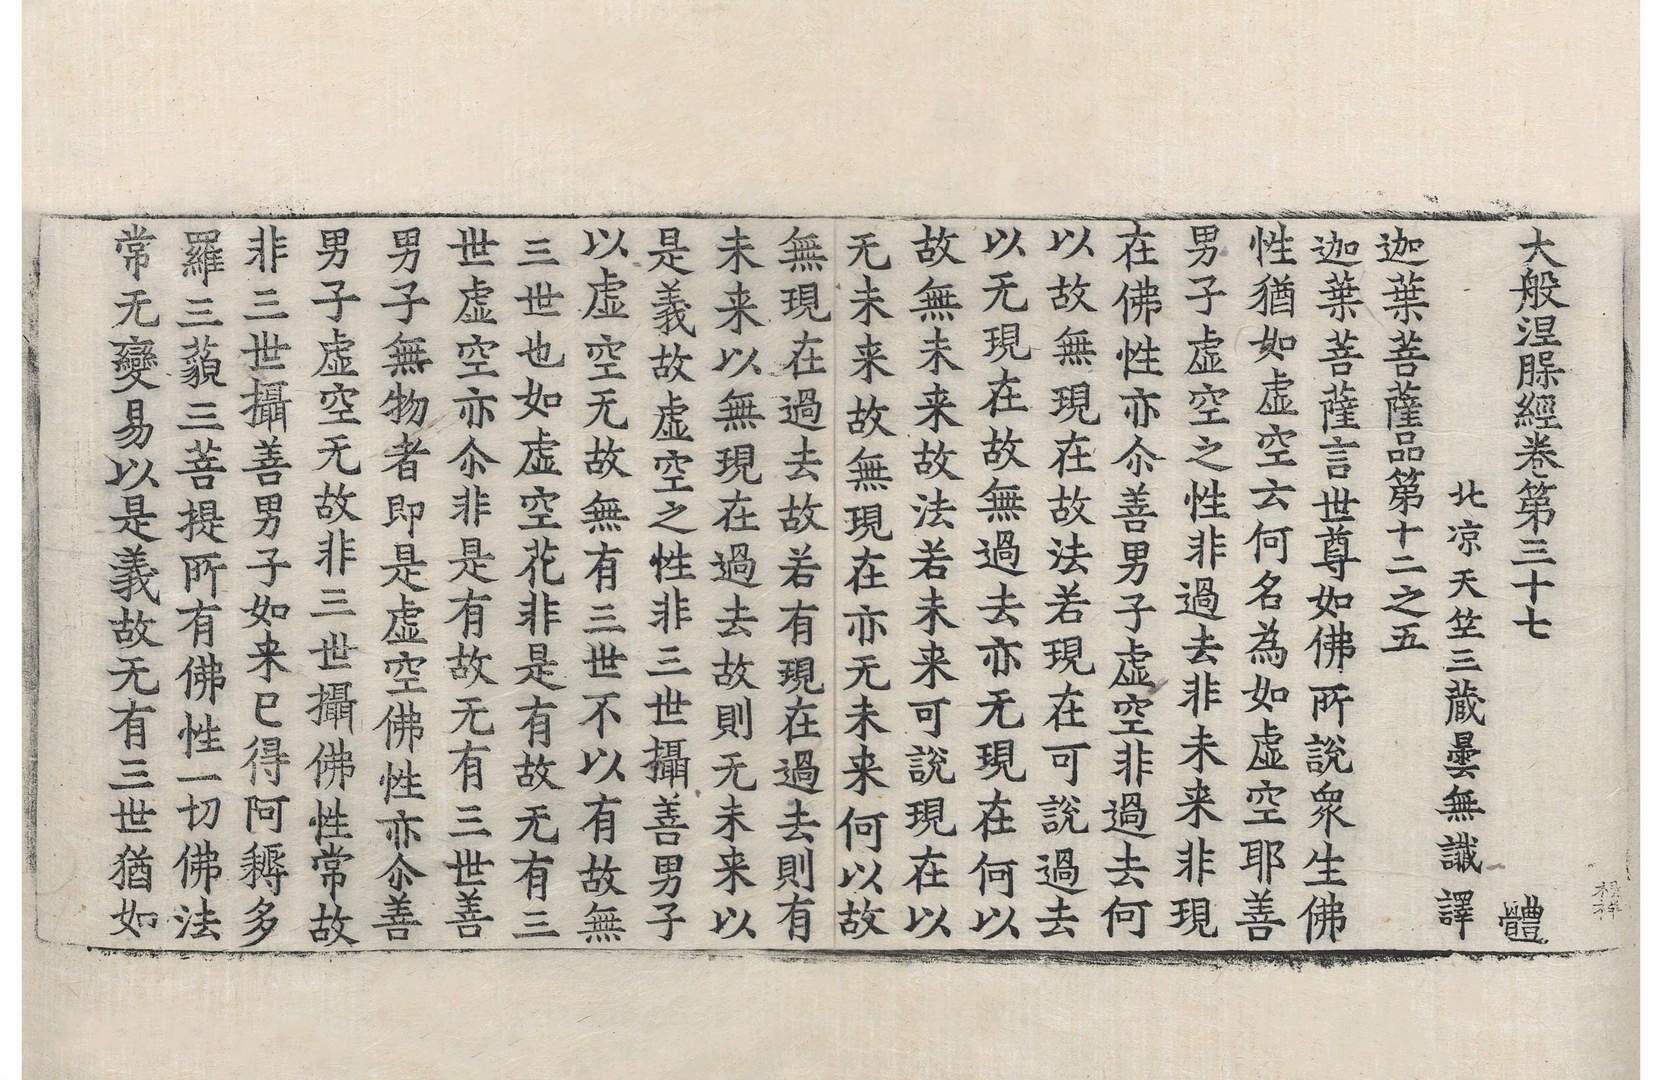 大般涅槃經卷第三十七 體
北涼天竺三藏曇無讖譯
迦葉菩薩品第十二之五
迦葉菩薩言世尊如佛所說衆生佛
性猶如虛空云何名為如虛空耶善
男子虛空之性非過去非未来非現
在佛性亦尒善男子虛空非過去何
以故無現在故法若現在可說過去
以无現在故無過去亦无現在何以
故無未来故法若未来可說現在以
无未来故無現在亦无未来何以故
無現在過去故若有現在過去則有
未来以無現在過去故則无未来以
是義故虛空之性非三世攝善男子
以虛空无故無有三世不以有故無
三世也如虛空花非是有故无有三
世虛空亦尒非是有故无有三世善
男子無物者即是虛空佛性亦尒善
男子虛空无故非三世攝佛性常故
非三世攝善男子如来已得阿耨多
羅三藐三菩提所有佛性一切佛法
常无變易以是義故无有三世猶如